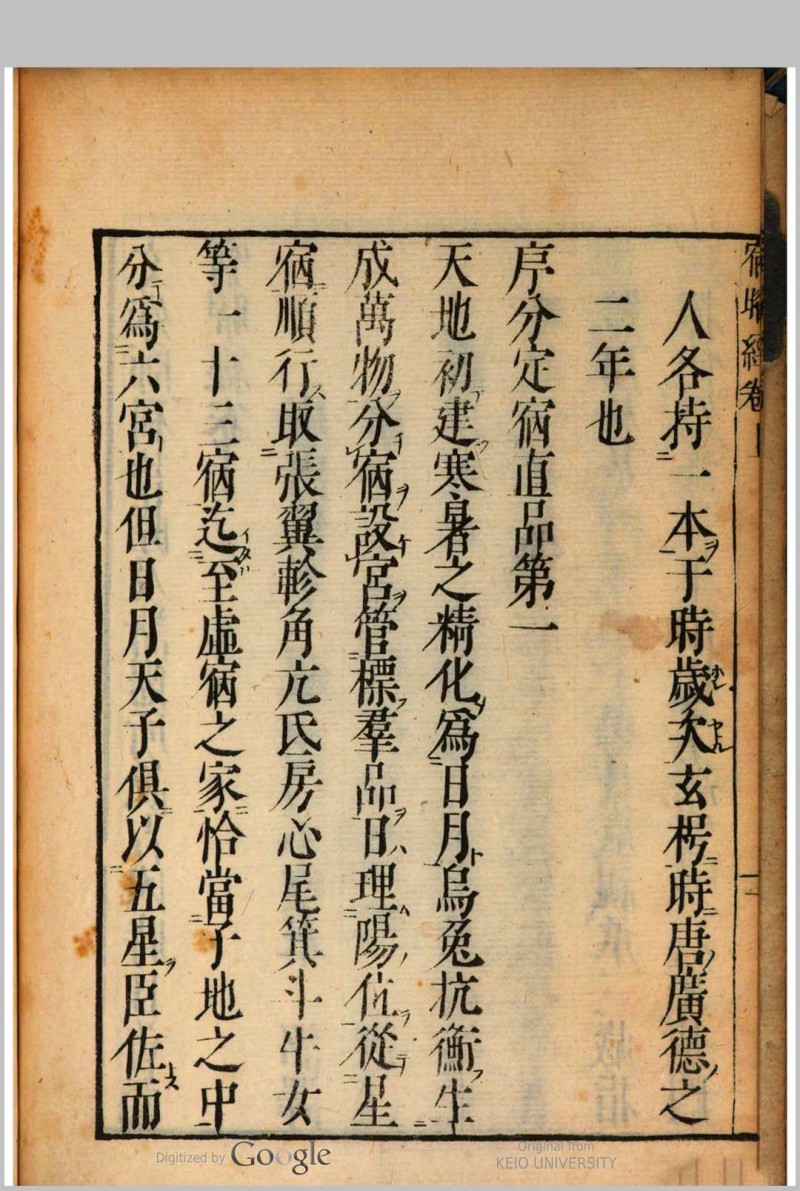 宿曜經卷上
人各持一本于時歲次玄枵時唐廣德之
二年也
序分定宿直品第一
天地初建寒暑之精化為日月烏兔抗衡生
成萬物分宿設宮管標羣品日理陽位從星
宿順行取張翼軫角亢氐房心尾箕斗牛女
等一十三宿迄至虛宿之家恰當子地之中
分為六宮也但日月天子俱以五星臣佐而
Digitized by Google
Original from
KEIO UNIVERSITY